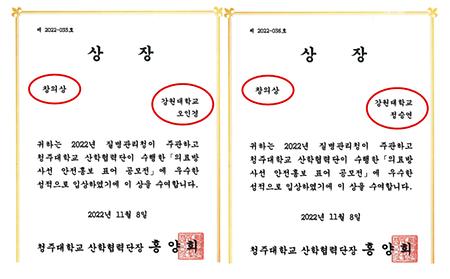 제 2022-035호
상 장
창의상
강원대학교
오인경
귀하는 2022년 질병관리청이 주관하고
청주대학교 산학협력단이 수행한「의료방
사선 안전홍보 표어 공모전」에 우수한
성적으로 입상하였기에 이 상을 수여합니다.
2022년 11월 8일
청주대학교 산학협력단장 홍 양 희
제 2022-036호
상 장
창의상
강원대학교
정승연
귀하는 2022년 질병관리청이 주관하고
청주대학교 산학협력단이 수행한「의료방
사선 안전홍보 표어 공모전」에 우수한
성적으로 입상하였기에 이 상을 수여합니다.
2022년 11월 8일
청주대학교 산학협력단장 홍 양 희